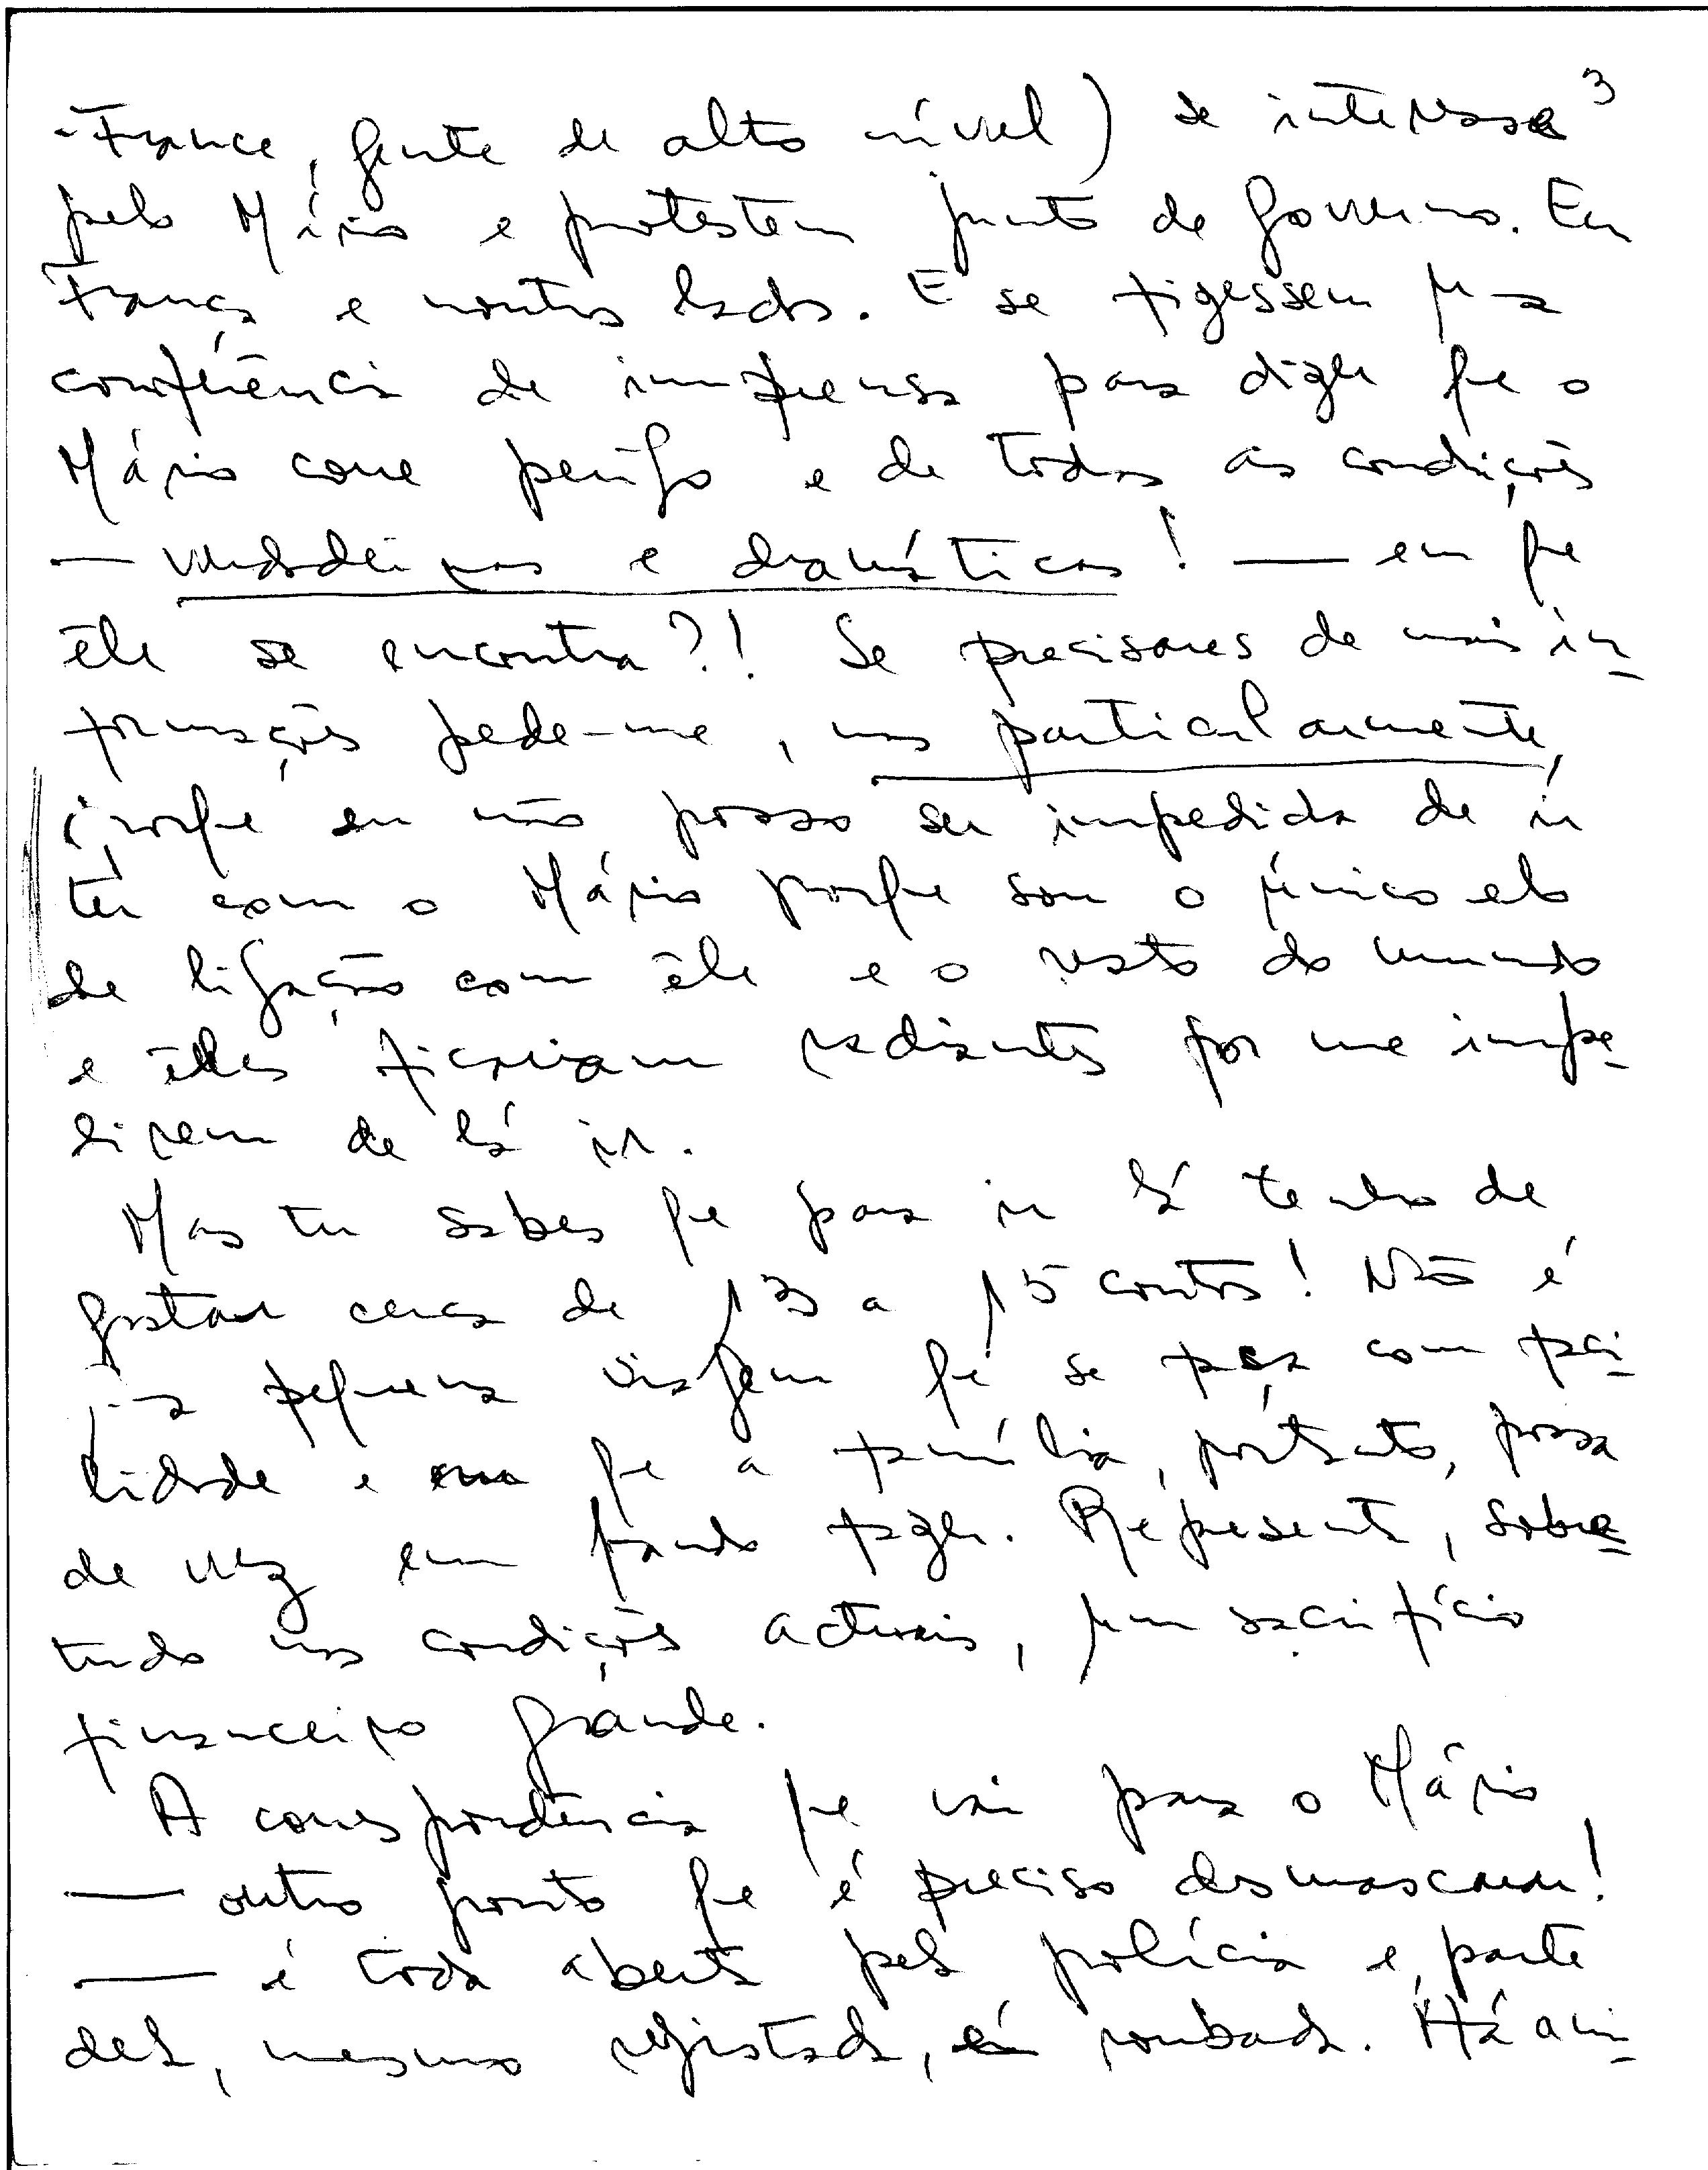 3
-France, gente de alto nível) se interesse
pelo Mário e protestem junto do Governo. Em
França e noutros lados. E se fizessem uma
conferência de imprensa para dizer que o
Mário corre perigo e de todas as condições
— verdadeiras e dramáticas! — em que
êle se encontra?! Se precisares de mais in-
formações pede-me, mas particularmente,
porque eu não posso ser impedida de ir
ter com o Mário porque sou o único elo
de ligação com êle e o resto do mundo
e êles ficariam radiantes por me impe-
direm de lá ir.
Mas tu sabes que para ir lá tenho de
gastar cerca de 13 a 15 contos! Não é
uma pequena viagem que se faça com faci-
lidade e que a família, portanto, possa
de vez em quando fazer. Representa, sobre-
tudo nas condições actuais, um sacrifício
financeiro grande.
A correspondência que vai para o Mário
— outro ponto que é preciso desmascarar!
— é toda aberta pela polícia e, parte
dela, mesmo registada, é roubada. Há ami-